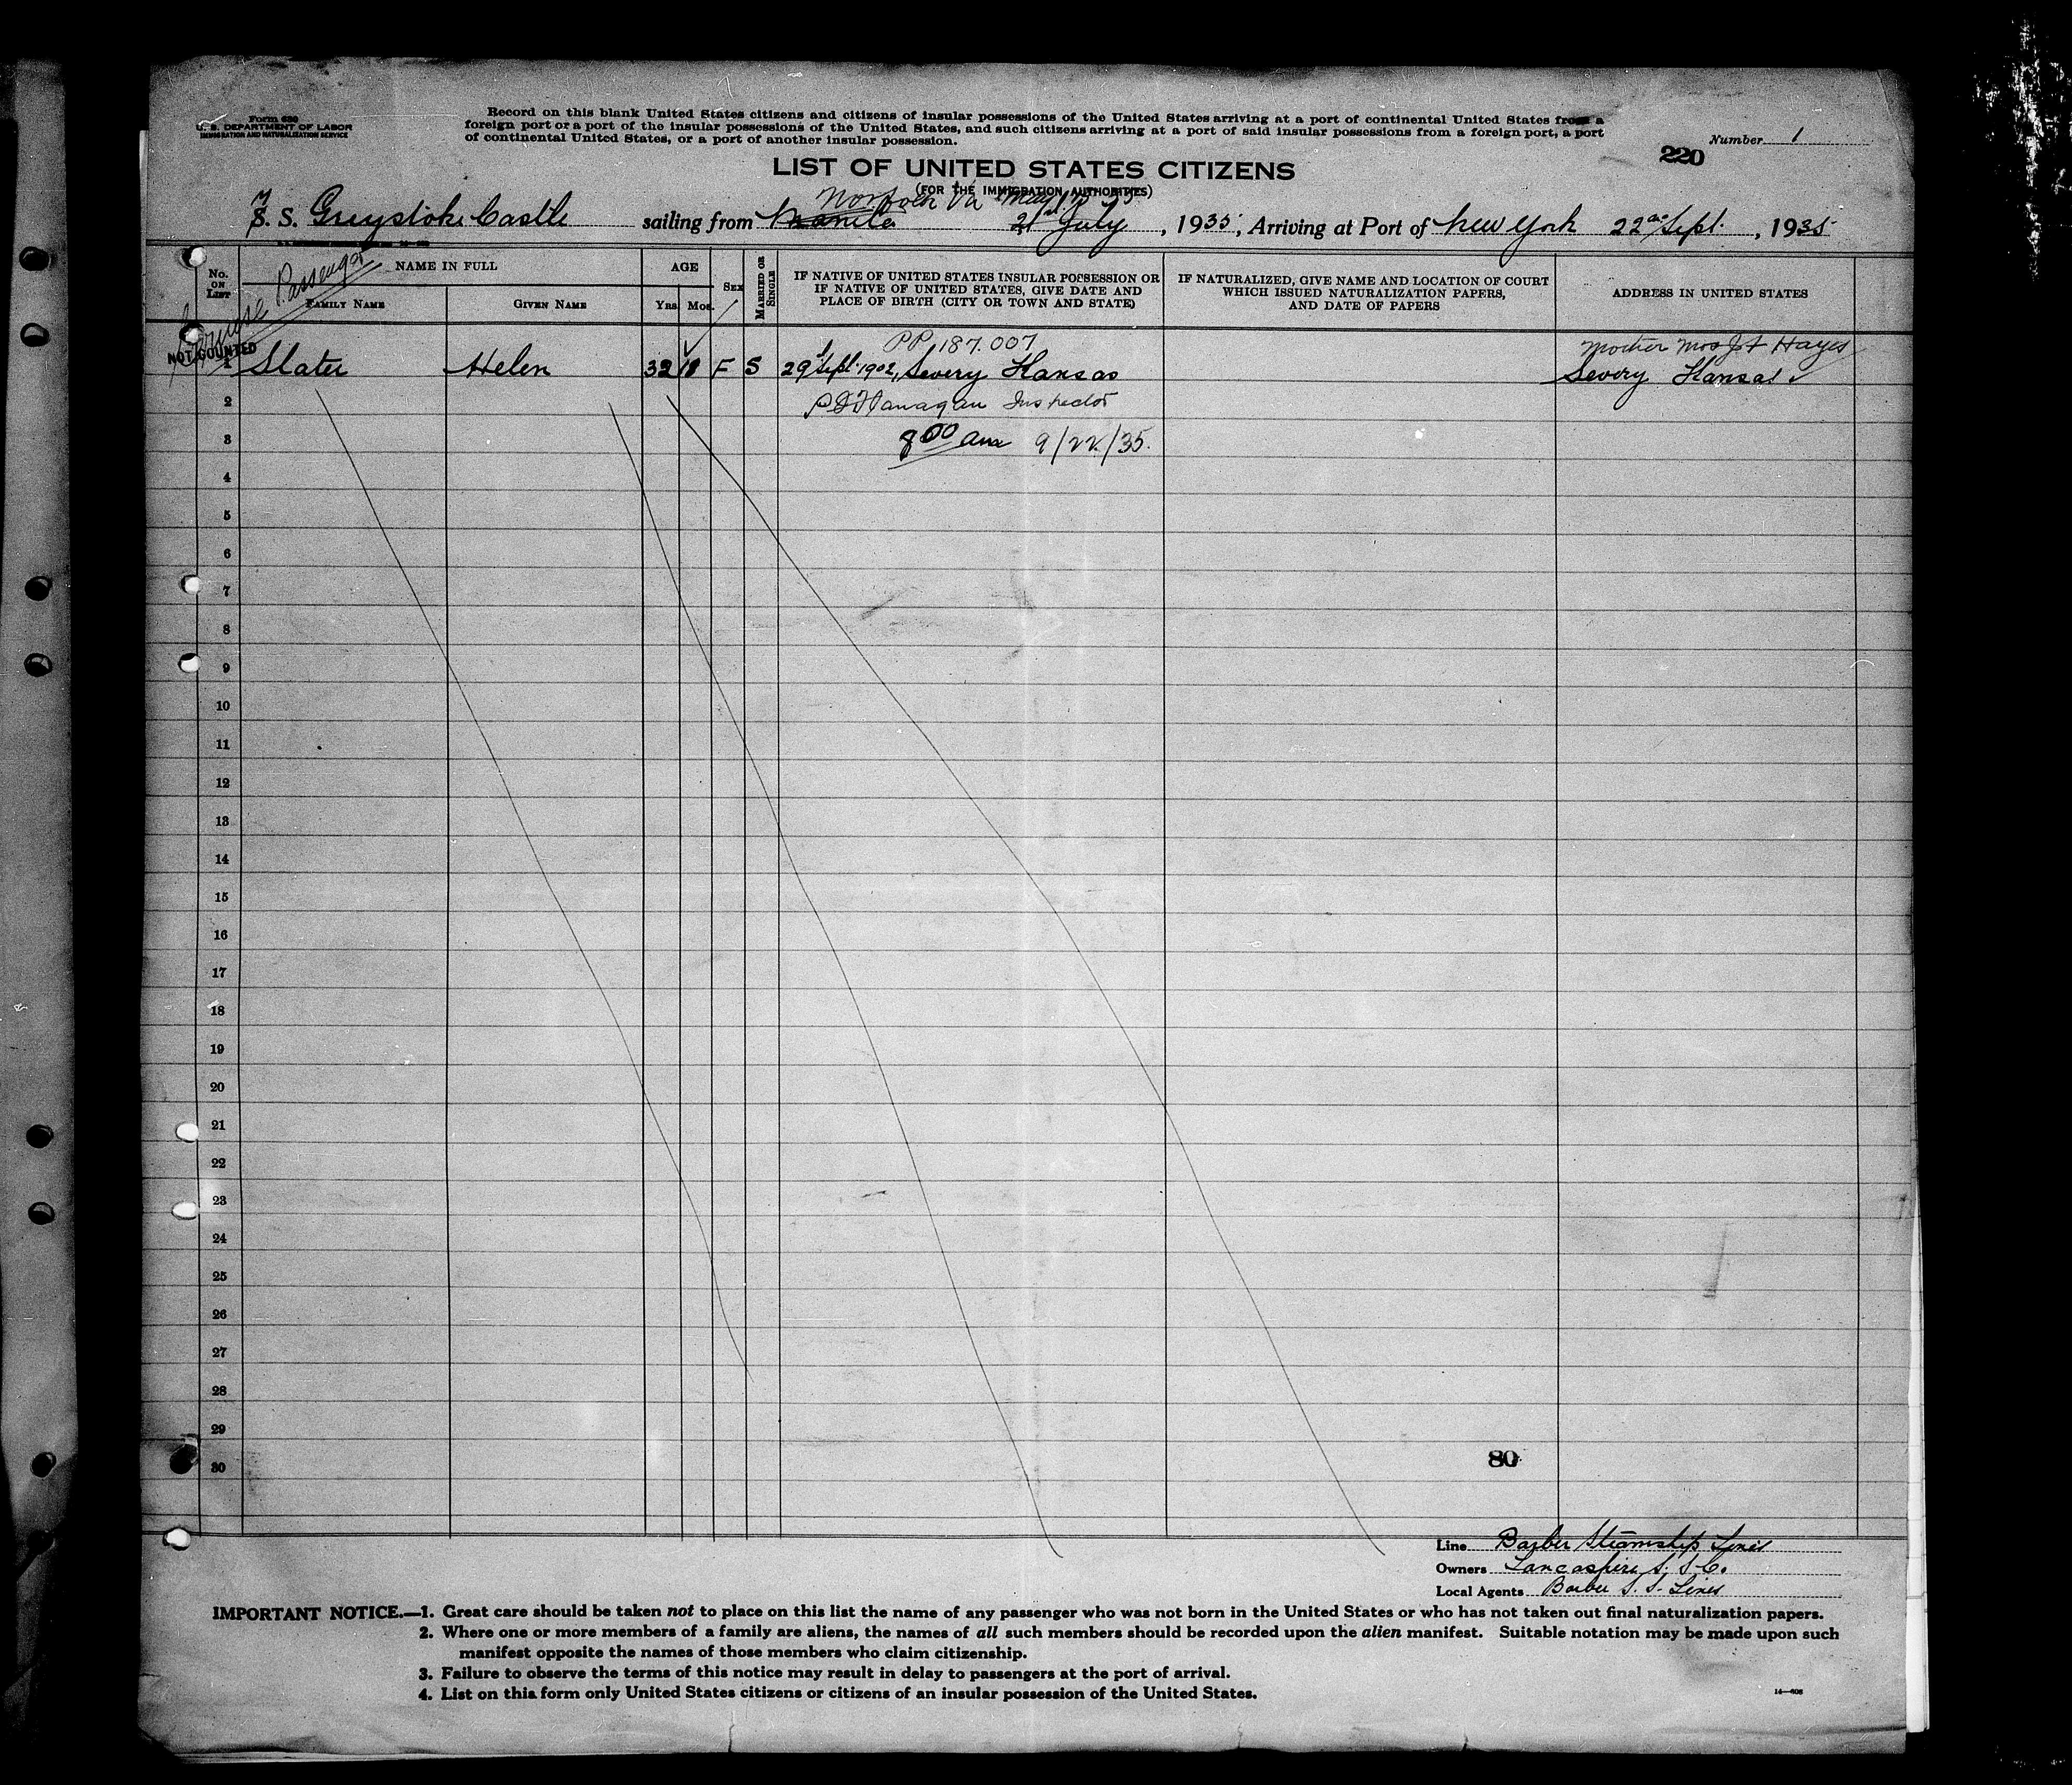 Form 630
U. S. DEPARTMENT OF LABOR
IMMIGRATION AND NATURALIZATION SERVICE
Record on this blank United States citizens and citizens of insular possessions of the United States arriving at a port of continental United States from a
foreign port or a port of the insular possessions of the United States, and such citizens arriving at a port of said insular possessions from a foreign port, a port
of continental United States, or a port of another insular possession.
Number 1
220
LIST OF UNITED STATES CITIZENS
(FOR THE IMMIGRATION AUTHORITIES)
Norfolk Va May 13 35
M S. S. Greystoke Castle sailing from Manila 21st July, 1935, Arriving at Port of New York 22nd Sept., 1935
Cruise Passenger
No. ON LIST
NAME IN FULL
FAMILY NAME
GIVEN NAME
AGE
Yrs.
Mos.
SEX
MARRIED OR SINGLE
IF NATIVE OF UNITED STATES INSULAR POSSESSION OR
IF NATIVE OF UNITED STATES, GIVE DATE AND
PLACE OF BIRTH (CITY OR TOWN AND STATE)
IF NATURALIZED, GIVE NAME AND LOCATION OF COURT
WHICH ISSUED NATURALIZATION PAPERS,
AND DATE OF PAPERS
ADDRESS IN UNITED STATES
NOT COUNTED
PP 187.007
Mother Mrs Hayes
1 Slater Helen 32 F S 29 Sept. 1902, Severy Kansas Severy Kansas
2 Flanagan Inspector
3 8 00 am 9/22/35.
4
5
6
7
8
9
10
11
12
13
14
15
16
17
18
19
20
21
22
23
24
25
26
27
28
29
30
80
Line Barber Steamship Lines
Owners Lancashire S. S. C.
Local Agents Barber S. S. Lines
IMPORTANT NOTICE.—1. Great care should be taken not to place on this list the name of any passenger who was not born in the United States or who has not taken out final naturalization papers.
2. Where one or more members of a family are aliens, the names of all such members should be recorded upon the alien manifest. Suitable notation may be made upon such
manifest opposite the names of those members who claim citizenship.
3. Failure to observe the terms of this notice may result in delay to passengers at the port of arrival.
4. List on this form only United States citizens or citizens of an insular possession of the United States.
14—608